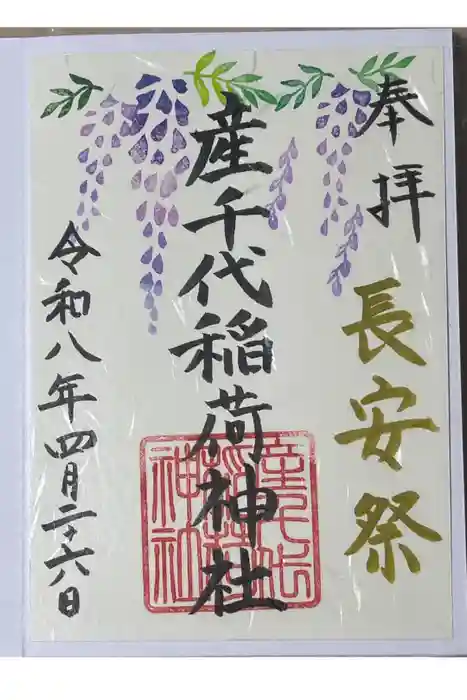 奉拝
長安祭
産千代稲荷神社
産千代稲荷神社
令和八年四月二十六日